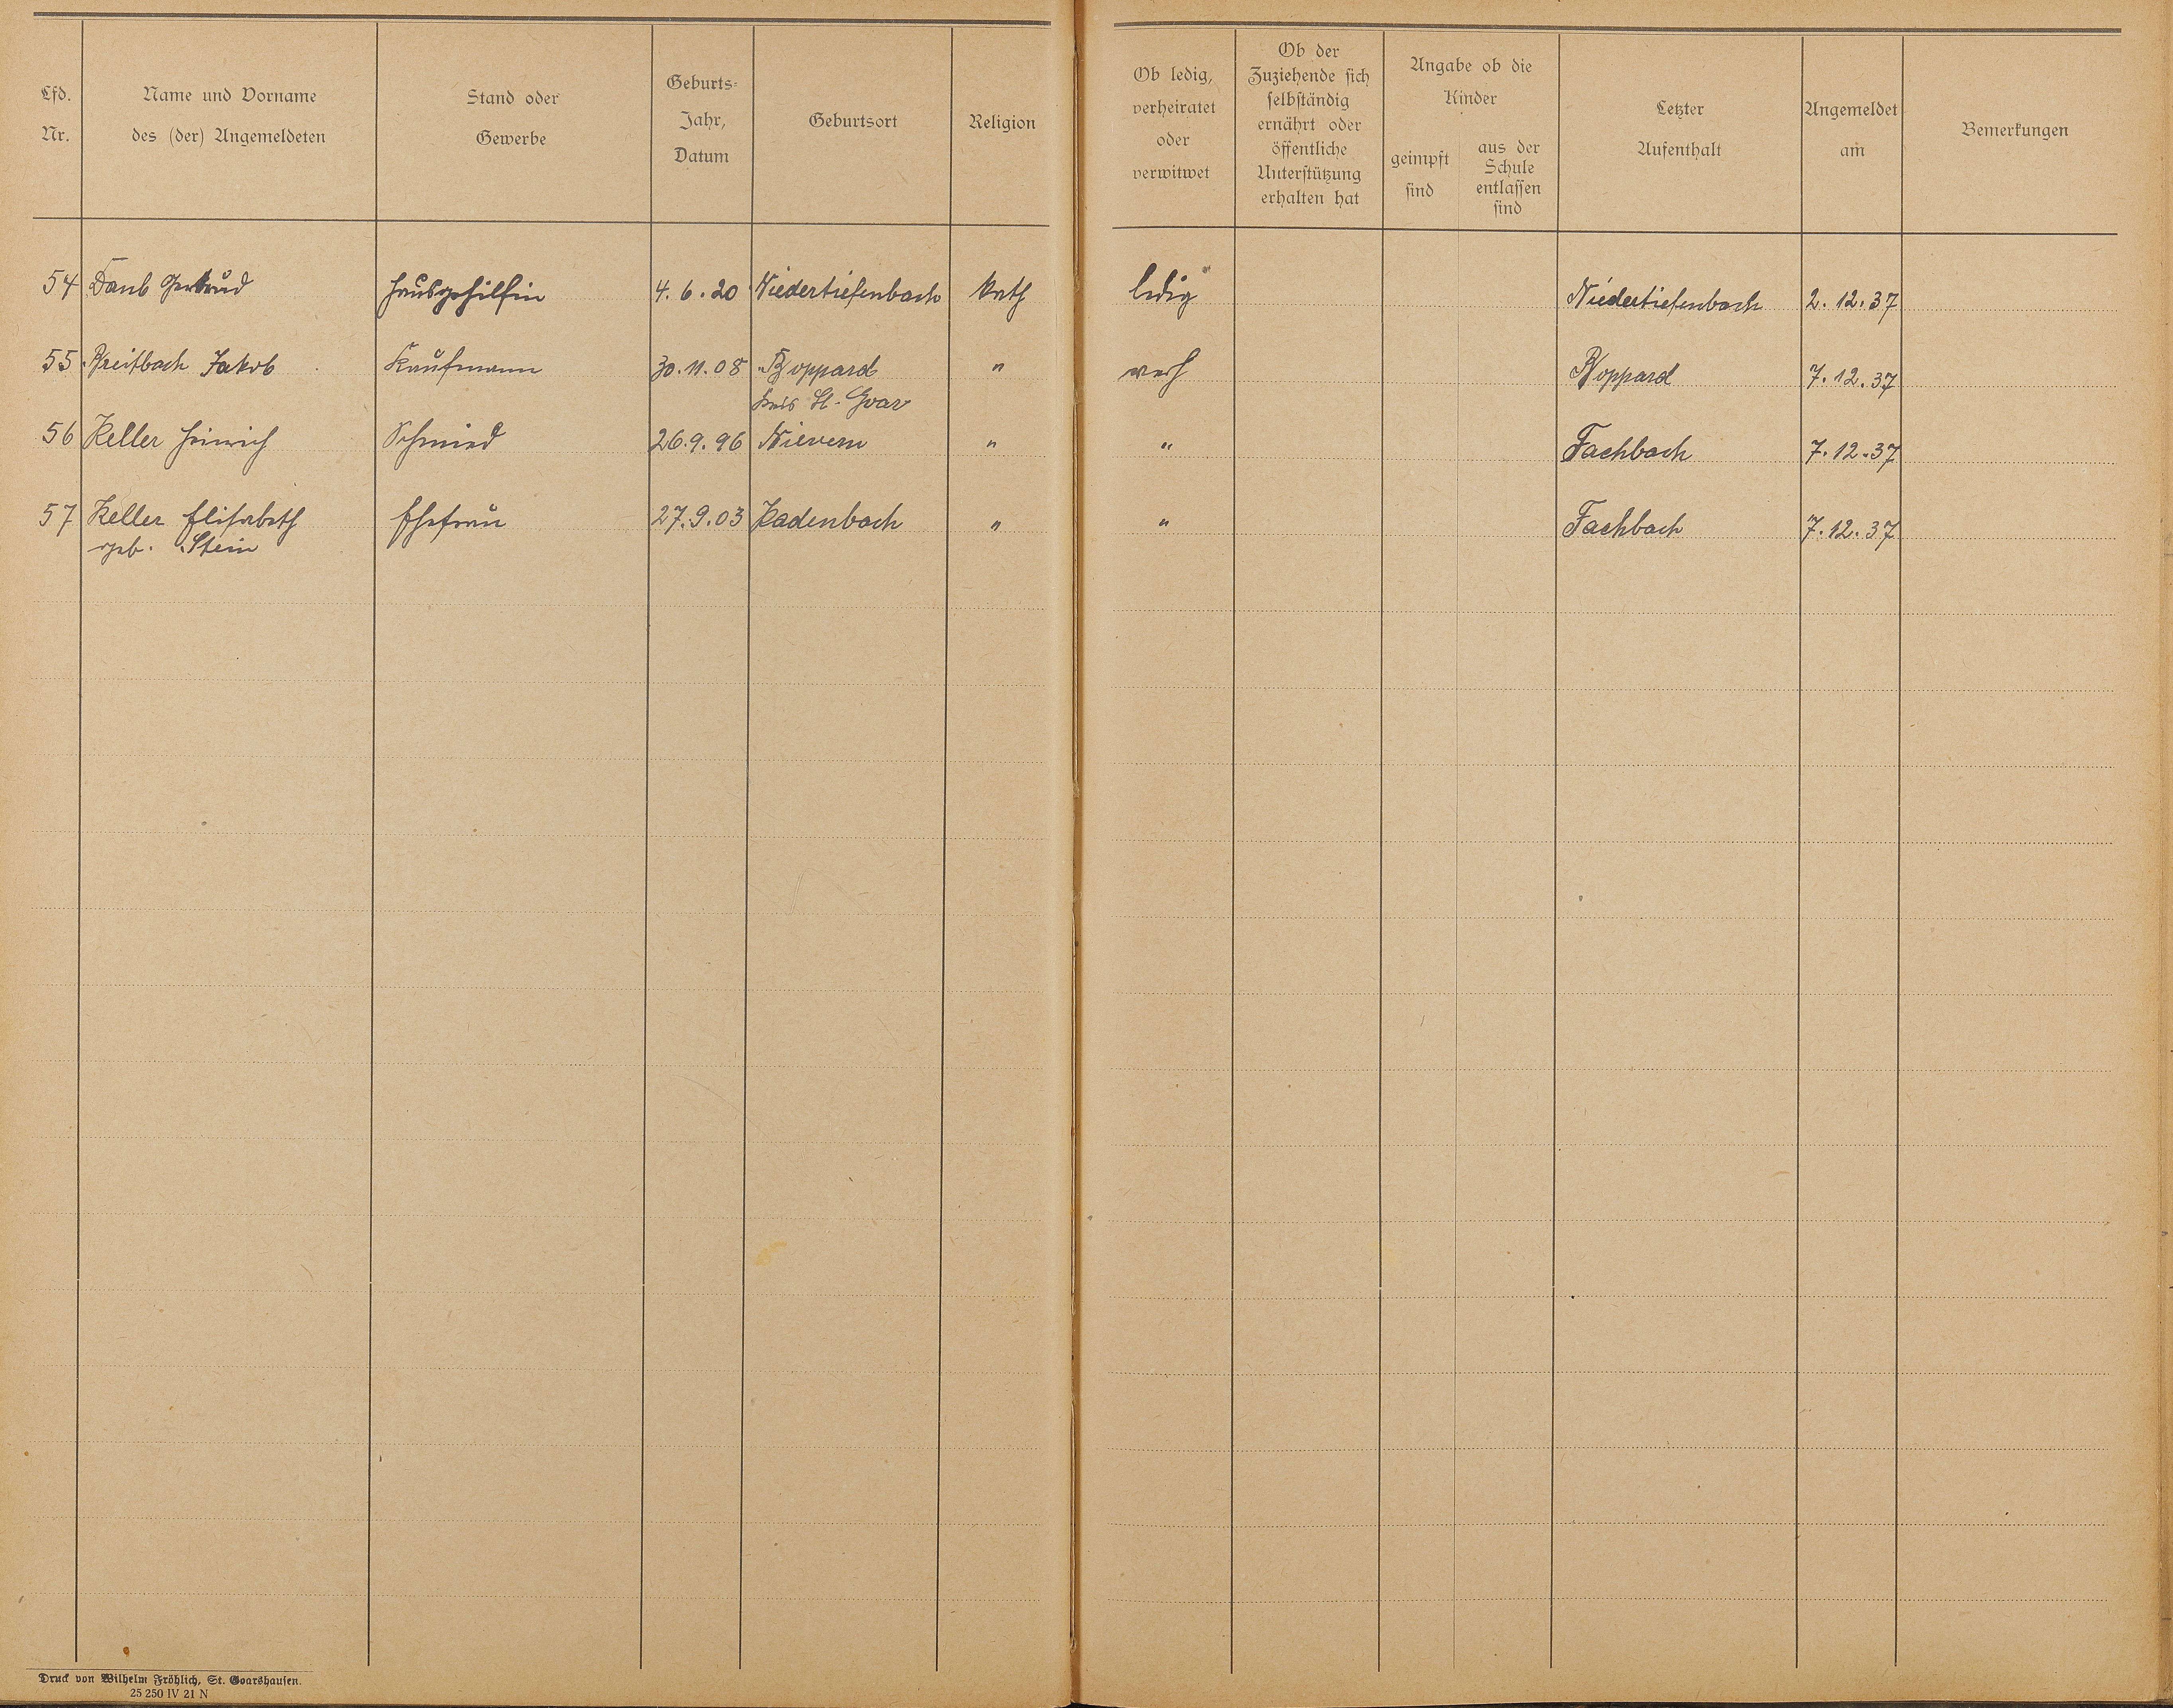 Lfd. Nr.
Name und Vorname des (der) Angemeldeten
Stand oder Gewerbe
Geburts-Jahr, Datum
Geburtsort
Religion
Ob ledig, verheiratet oder verwitwet
Ob der Zuziehende sich selbständig ernährt oder öffentliche Unterstützung erhalten hat
Angabe ob die Kinder
geimpft sind
aus der Schule entlassen sind
Letzter Aufenthalt
Angemeldet am
Bemerkungen
54 Daub Gertrud Hausgehilfin 4.6.20 Niedertiefenbach kath ledig Niedertiefenbach 2.12.37
55 Breitbach Jakob Kaufmann 30.11.08 Boppard " verh Boppard 7.12.37
Kreis St. Goar
56 Keller Heinrich Schmied 26.9.96 Nievern " " Fachbach 7.12.37
57 Keller Elisabeth Ehefrau 27.9.03 Kadenbach " " Fachbach 7.12.37
geb. Stein
Druck von Wilhelm Fröhlich, St. Goarshausen.
25 250 IV 21 N